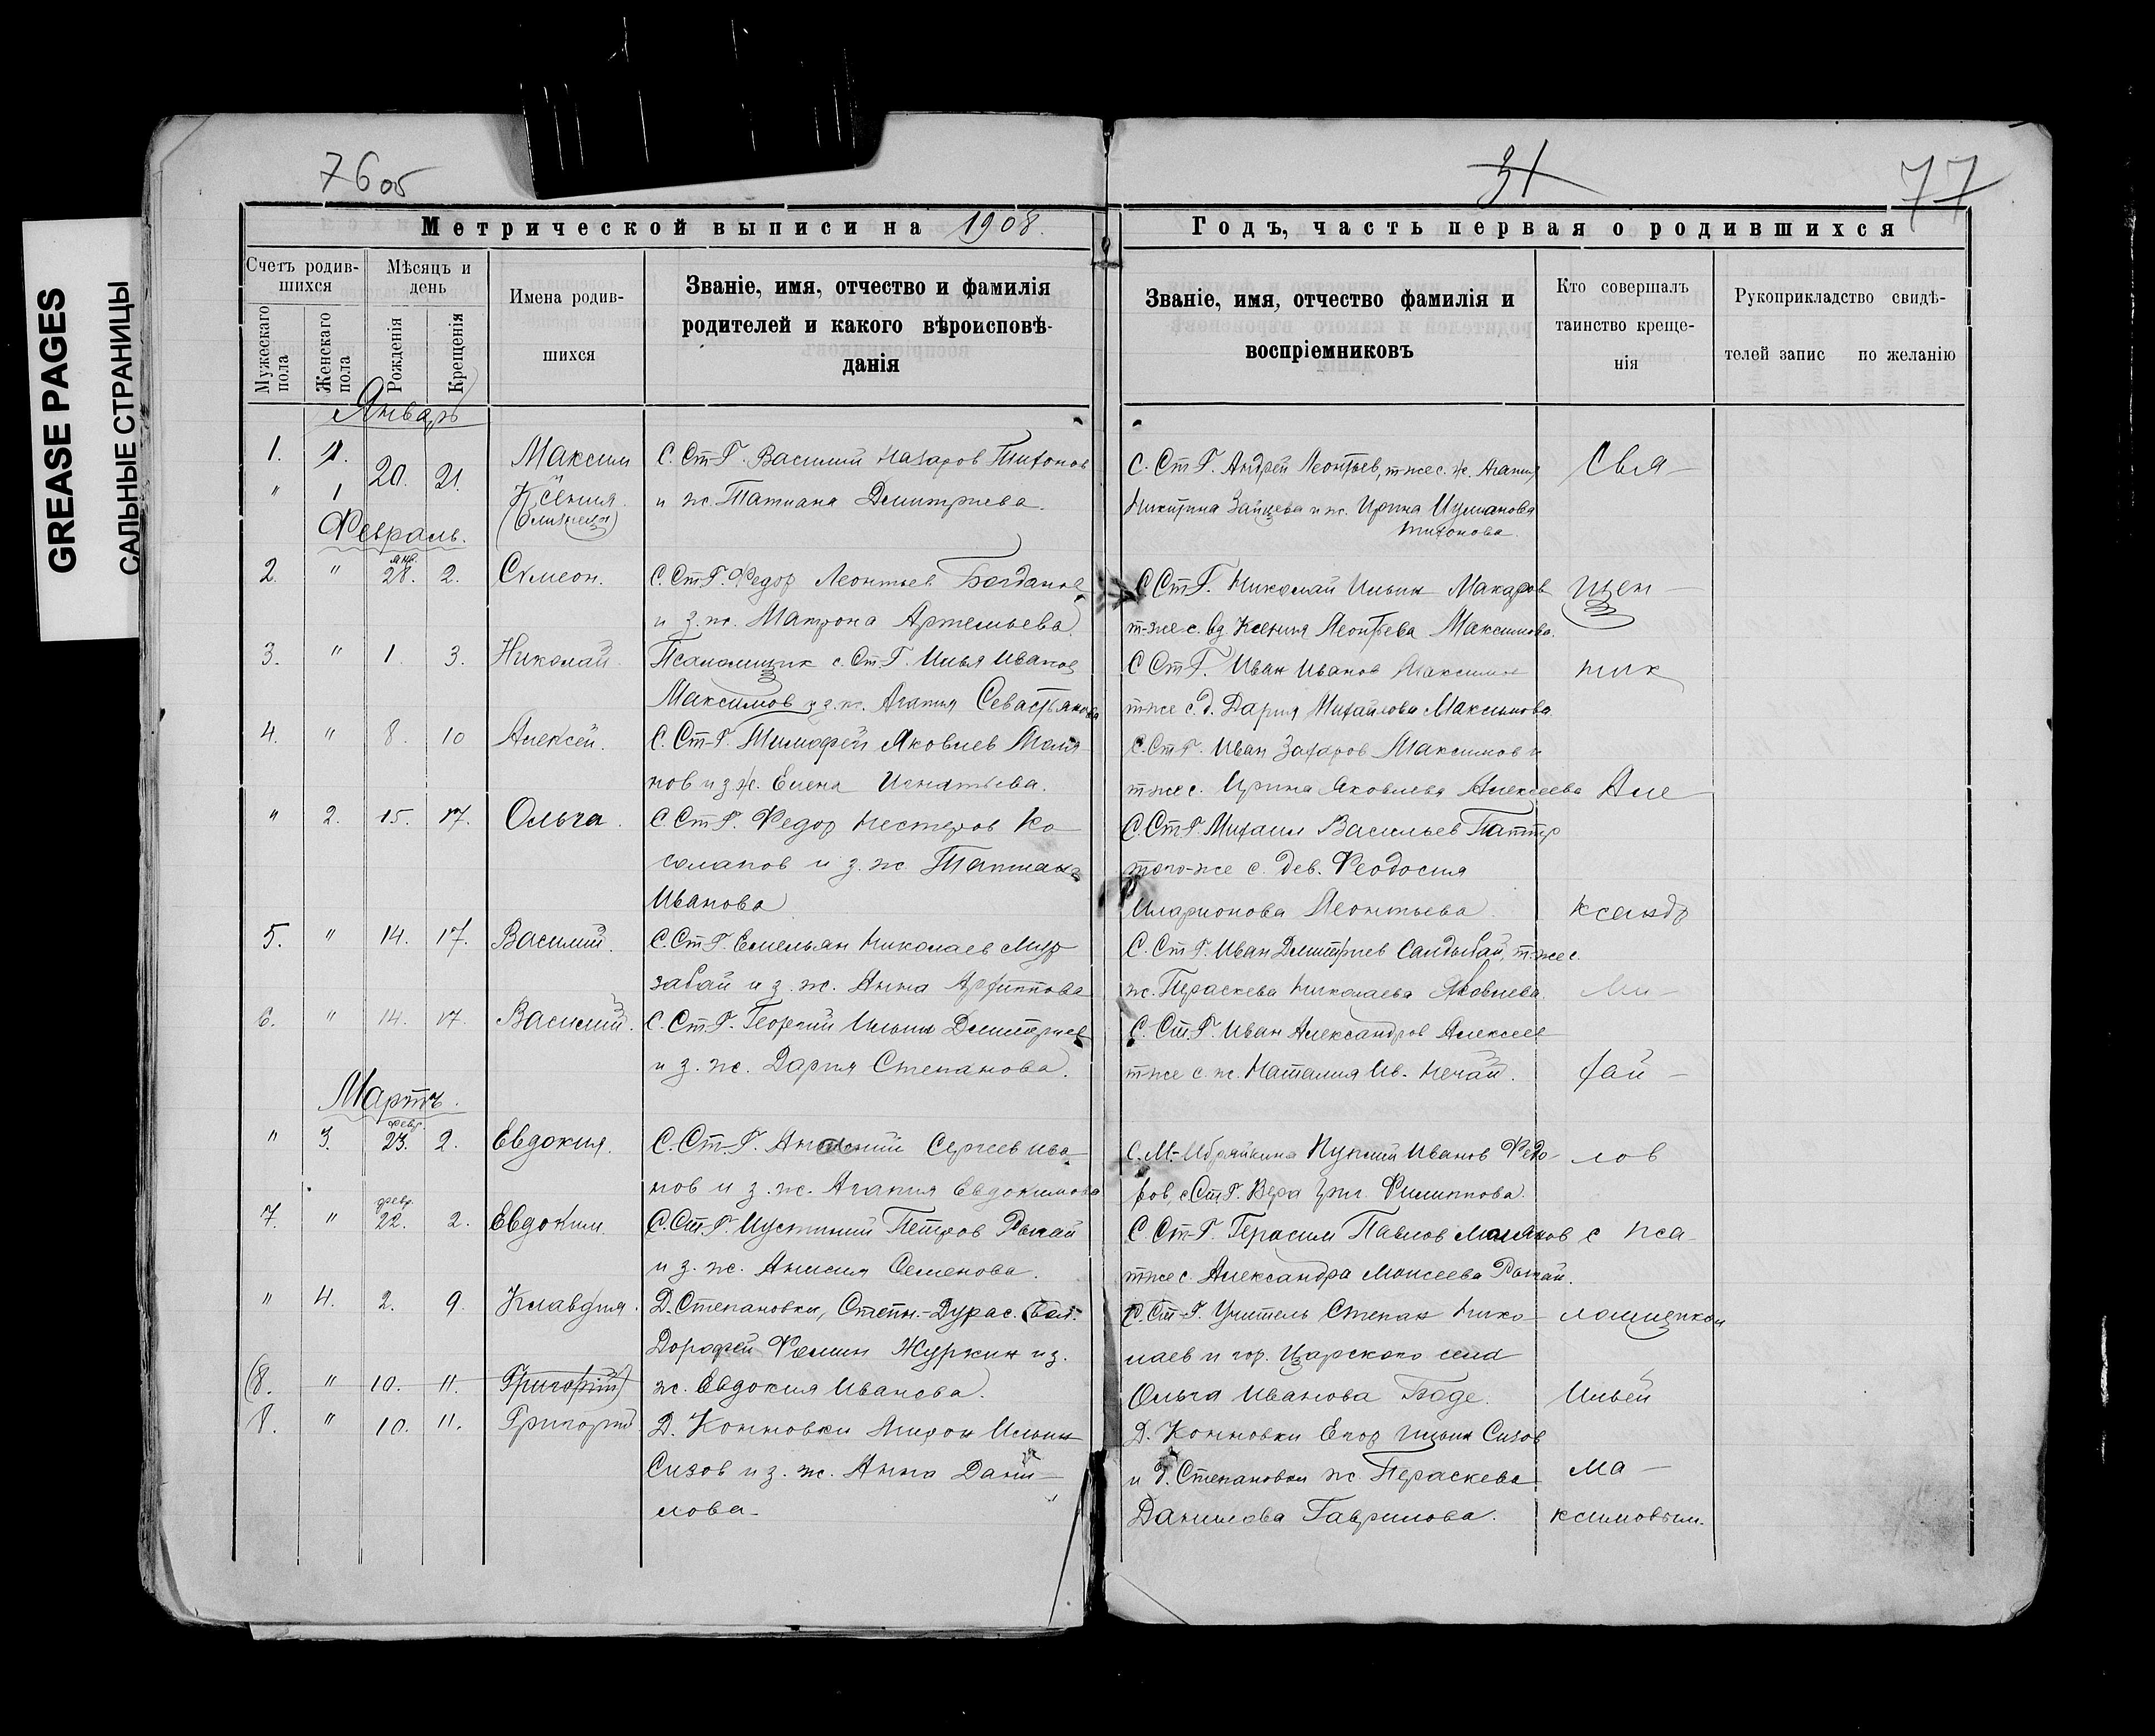 GREASE PAGES
САЛЬНЫЕ СТРАНИЦЫ
76 об
31
77
Метрической выписи на 1908.
Годъ, часть первая о родившихся
Счетъ родив-
шихся
Мужескаго пола
Женскаго пола
Мѣсяцъ и
день
Рожденія
Крещенія
Имена родив-
шихся
Званіе, имя, отчество и фамилія
родителей и какого вѣроисповѣ-
данія
Званіе, имя, отчество фамилія и
воспріемниковъ
Кто совершалъ
таинство креще-
нія
Рукоприкладство свидѣ-
телей запис по желанію
Январь
1. 1. 20. 21. Максим С. Ст-Г. Василий Назаров Тихонов
С. Ст Г. Андрей Леонтьев, т-же с. ж. Агапия Свя-
" 1 Ксения. и ж. Татиана Димитриева.
(близнецы)
Никитина Зайцева и ж. Ирина
Тихонова.
Февраль.
2. " янв. 28. 2. Симеон. С. Ст Г. Федор Леонтьев Богданов
С Ст Г. Николай Ильин Макаров щен-
и з. ж. Матрона Артемьева.
т-же с. вд Ксения Леонтьева Максимова.
3. " 1. 3. Николай. Псаломщик с. Ст-Г. Илья Иванов
С Ст Г. Иван Иванов Максимов ник
Максимов и з. ж. Агапия Севастьянова
т-же с. д. Дария Михайлова Максимова.
4. " 8. 10 Алексей. С. Ст-Г. Тимофей Яковлев Моля
С. Ст Г. Иван Захаров Максимов и
нов и з ж. Елена Игнатьева.
т-же с. Ирина Яковлева Алексеева Але
" 2. 15. 17. Ольга. С Ст Г. Федор Нестеров Ко-
С. Ст Г. Михаил Васильев
солапов и з. ж. Татиана
того-же с. дев. Феодосия
Иванова
Иларионова Леонтьева. ксандр
5. " 14. 17. Василий. С. Ст Г. Емельян Николаев Мир
С. Ст Г. Иван Димитриев Салдыбай, т-же с.
забай и з. ж. Анна Архиппова
ж. Параскева Николаева Яковлева. Ми-
6. " 14. 17. Василий. С. Ст Г. Георгий Ильин Димитриев
С. Ст. Г. Иван Александров Алексеев
и з. ж. Дария Степанова.
т-же с. ж. Наталия Ив. Нечай. хай-
Мартъ.
" 3. февр 23. 2. Евдокия. С. Ст. Г. Сергеев Ива-
С. М.-Ибряйкина Иванов Федо- лов
нов и з. ж. Агапия Евдокимова
ров, с Ст Г. Вера Григ. Филиппова.
7. " февр. 22. 2. Евдоким. С. Ст. Г. Иустиний Петров Рынай
С. Ст-Г. Герасим Павлов Моляков с пса-
и з. ж. Анисия Семенова.
т-же с. Александра Моисеева Рынай.
" 4. 2. 9. Клавдия. Д. Степановки, Степн.-Дурас. вол.
С. Ст-Г. Учитель Степан Нико- ломщиком
Дорофей Фомин Журкин и з.
лаев и гор. Царского села
(8. " 10. 11. Григорий) ж. Евдокия Иванова.
Ольга Иванова Боде. Ильей
8. " 10. 11. Григорий Д. Конновки Мирон Ильин
Д. Конновки Егор Ильин Сизов
Сизов и з. ж. Анна Дани-
и д. Степановки ж. Параскева Ма-
лова.
Данилова Гаврилова. ксимовым.